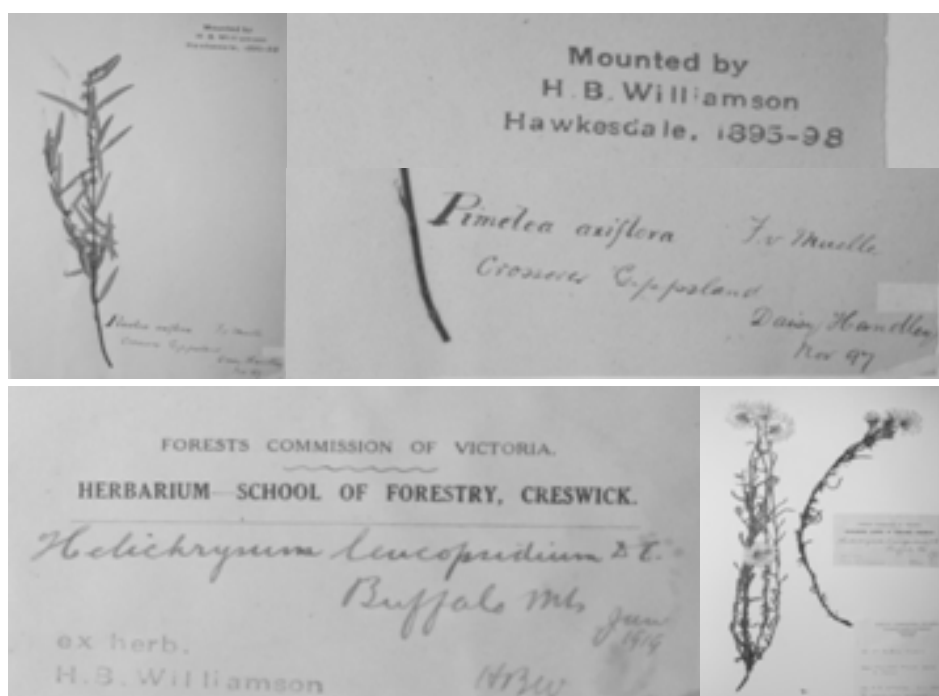 Mounted by
H. B. Williamson
Hawkesdale. 1895-98
Mounted by
H. B. Williamson
Hawkesdale. 1895-98
Pimelea axiflora F. v Muelle
Crossover Gippsland
Daisy Handley
Nov 97
Pimelea axiflora F. v Muelle
Crossover Gippsland
Daisy Handley
Nov 97
FORESTS COMMISSION OF VICTORIA.
HERBARIUM SCHOOL OF FORESTRY, CRESWICK.
Helichrysum leucopsidium D C.
Buffalo Mts
Jan
1919
ex herb.
H. B. Williamson
HBW